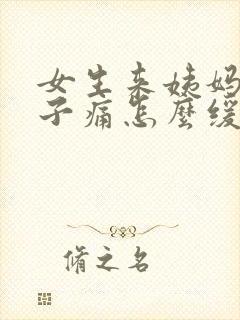 女生来姨妈
子痛怎麽缓
脩之名